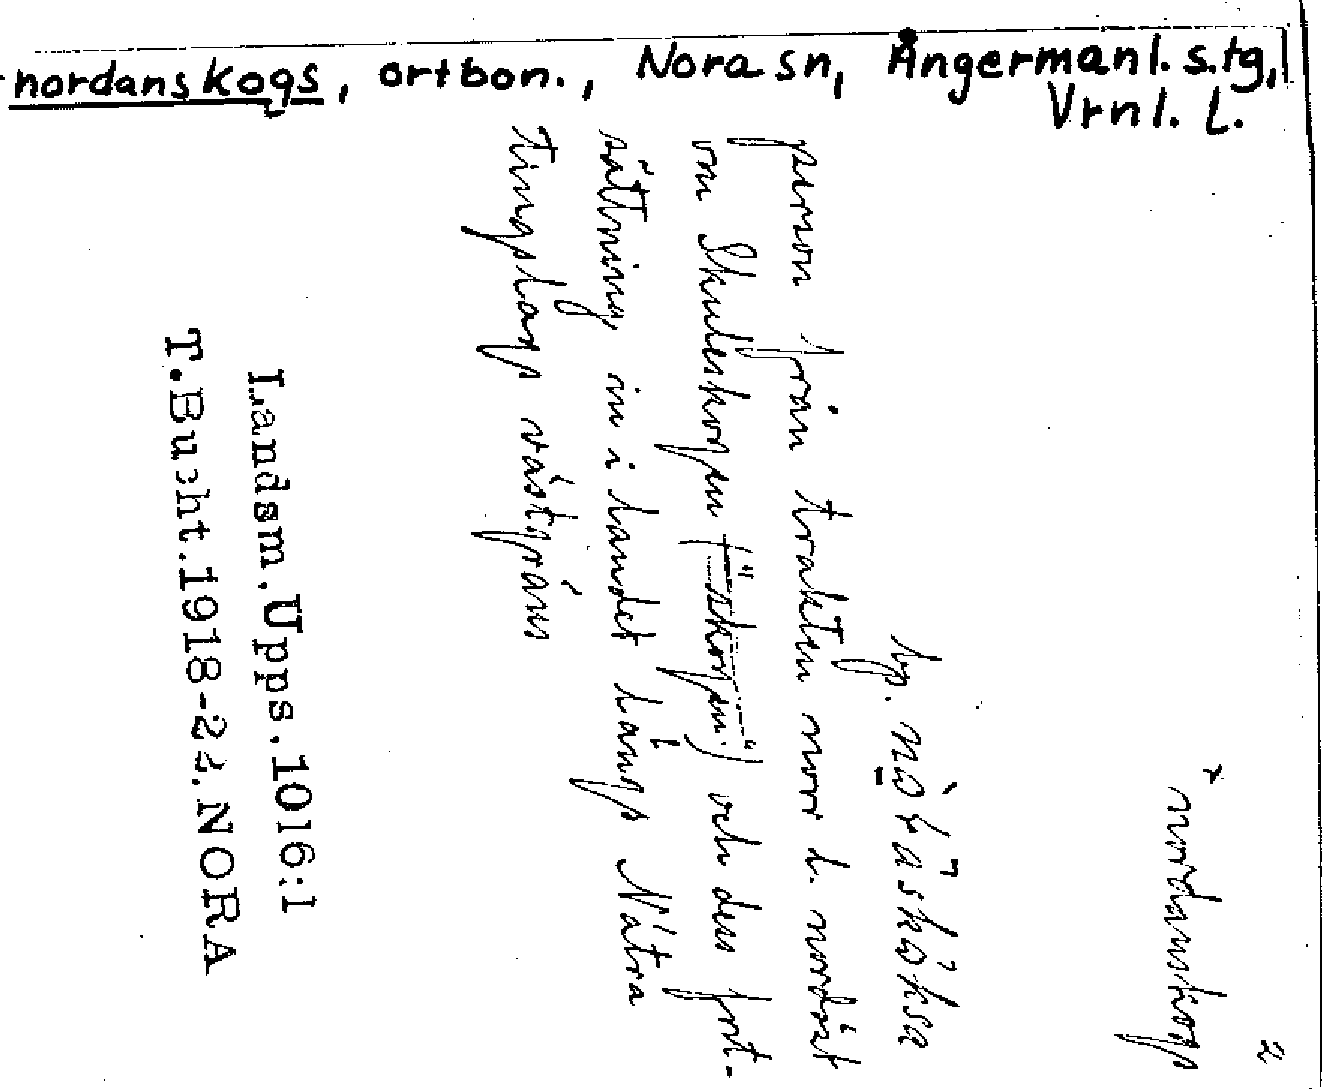 -nordanskogs, ortbon., Nora sn, Ångermanl. s.tg,
Vrnl. L.
2
* nordanskogs
hp.
person från trakten norr l. nordöst
om Skuleskogen ("skogen") och dess fort-
sättning in i landet längs Nätra
tingslags västgräns
Landsm. Upps. 1016:1
T. Bucht. 1918-22. NORA